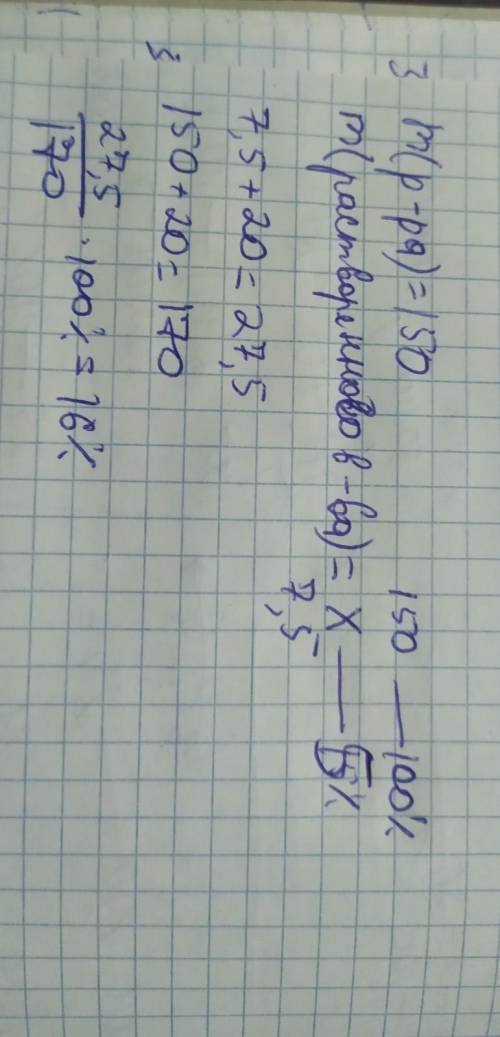 3 m(р-ра) = 150 150 — 100%
m(растворенново в-ва) = X — 5%
7,5
7,5 + 20 = 27,5
150 + 20 = 170
27,5
170 · 100% = 16%